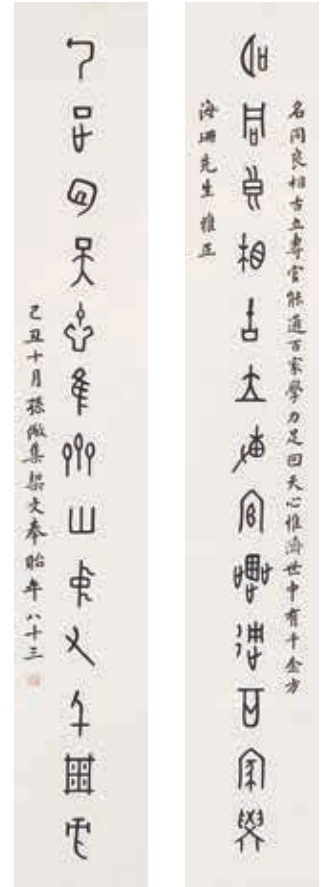 名同良相古立專官能通百家學力足回天心惟濟世中有千金方
名同良相古立專官能通百家學
海珊先生雅正
力足回天心惟濟世中有千金方
己丑十月張儆集契文奉貽年八十三